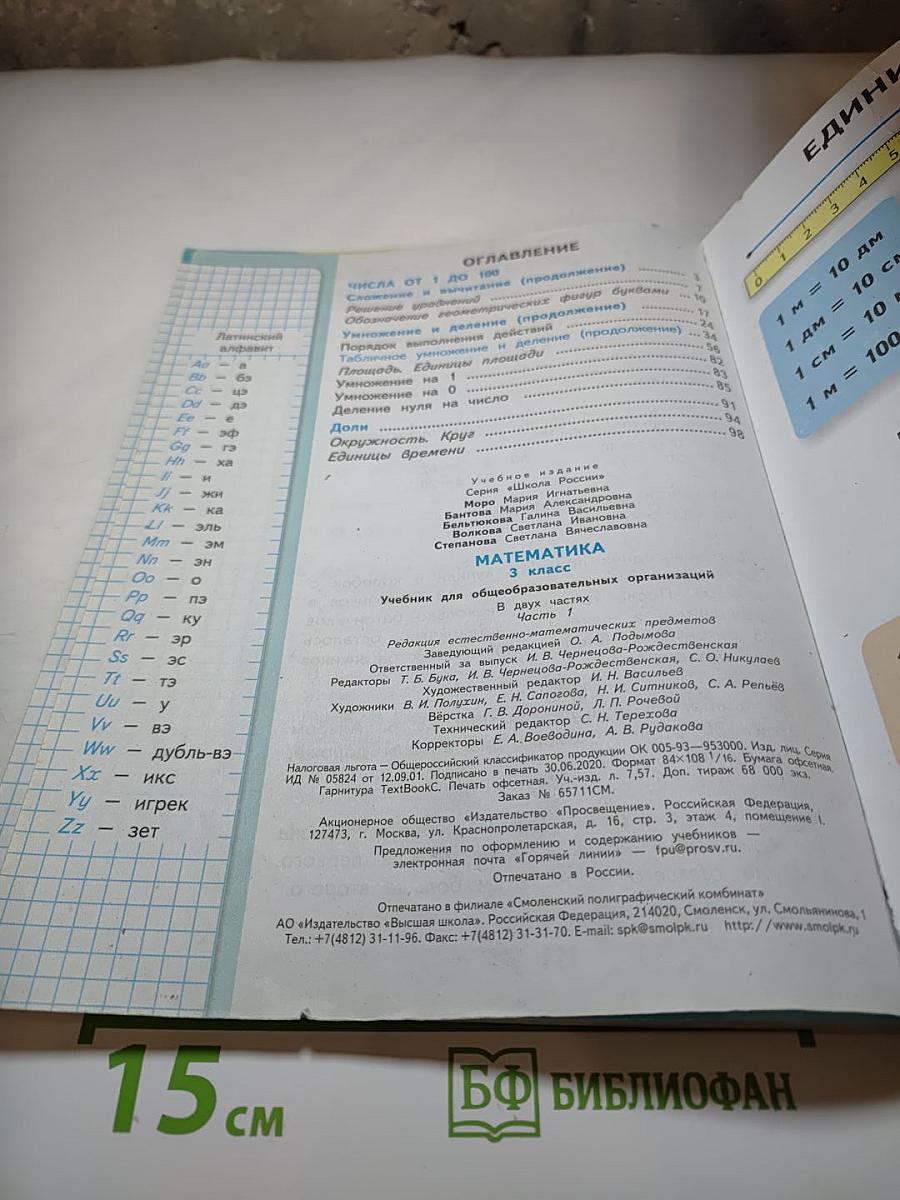 Латинский
алфавит
Aa — а
Bb — бэ
Cc — цэ
Dd — дэ
Ee — е
Ff — эф
Gg — гэ
Hh — ха
Ii — и
Jj — жи
Kk — ка
Ll — эль
Mm — эм
Nn — эн
Oo — о
Pp — пэ
Qq — ку
Rr — эр
Ss — эс
Tt — тэ
Uu — у
Vv — вэ
Ww — дубль-вэ
Xx — икс
Yy — игрек
Zz — зет
ОГЛАВЛЕНИЕ
ЧИСЛА ОТ 1 ДО 100
Сложение и вычитание (продолжение) 3
Решение уравнений 7
Обозначение геометрических фигур буквами 10
Умножение и деление (продолжение) 17
Порядок выполнения действий 24
Табличное умножение и деление (продолжение) 34
Площадь. Единицы площади 56
Умножение на 1 82
Умножение на 0 83
Деление нуля на число 85
Доли 91
Окружность. Круг 94
Единицы времени 98
Учебное издание
Серия «Школа России»
Моро Мария Игнатьевна
Бантова Мария Александровна
Бельтюкова Галина Васильевна
Волкова Светлана Ивановна
Степанова Светлана Вячеславовна
МАТЕМАТИКА
3 класс
Учебник для общеобразовательных организаций
В двух частях
Часть 1
Редакция естественно-математических предметов
Заведующий редакцией О. А. Подымова
Ответственный за выпуск И. В. Чернецова-Рождественская
Редакторы Т. Б. Бука, И. В. Чернецова-Рождественская, С. О. Никулаев
Художественный редактор И. Н. Васильев
Художники В. И. Полухин, Е. Н. Сапогова, Н. И. Ситников, С. А. Репьёв
Вёрстка Г. В. Дорониной, Л. П. Рочевой
Технический редактор С. Н. Терехова
Корректоры Е. А. Воеводина, А. В. Рудакова
Налоговая льгота — Общероссийский классификатор продукции ОК 005-93—953000. Изд. лиц. Серия
ИД № 05824 от 12.09.01. Подписано в печать 30.06.2020. Формат 84×108 1/16. Бумага офсетная.
Гарнитура TextBookC. Печать офсетная. Уч.-изд. л. 7,57. Доп. тираж 68 000 экз.
Заказ № 65711СМ.
Акционерное общество «Издательство «Просвещение». Российская Федерация,
127473, г. Москва, ул. Краснопролетарская, д. 16, стр. 3, этаж 4, помещение I.
Предложения по оформлению и содержанию учебников —
электронная почта «Горячей линии» — fpu@prosv.ru.
Отпечатано в России.
Отпечатано в филиале «Смоленский полиграфический комбинат»
АО «Издательство «Высшая школа». Российская Федерация, 214020, Смоленск, ул. Смольянинова, 1
Тел.: +7(4812) 31-11-96. Факс: +7(4812) 31-31-70. E-mail: spk@smolpk.ru http://www.smolpk.ru
0 1 2 3 4 5
1 м = 10 дм
1 дм = 10 см
1 см = 10
1 м = 100
15 см
БФ БИБЛИОФАН